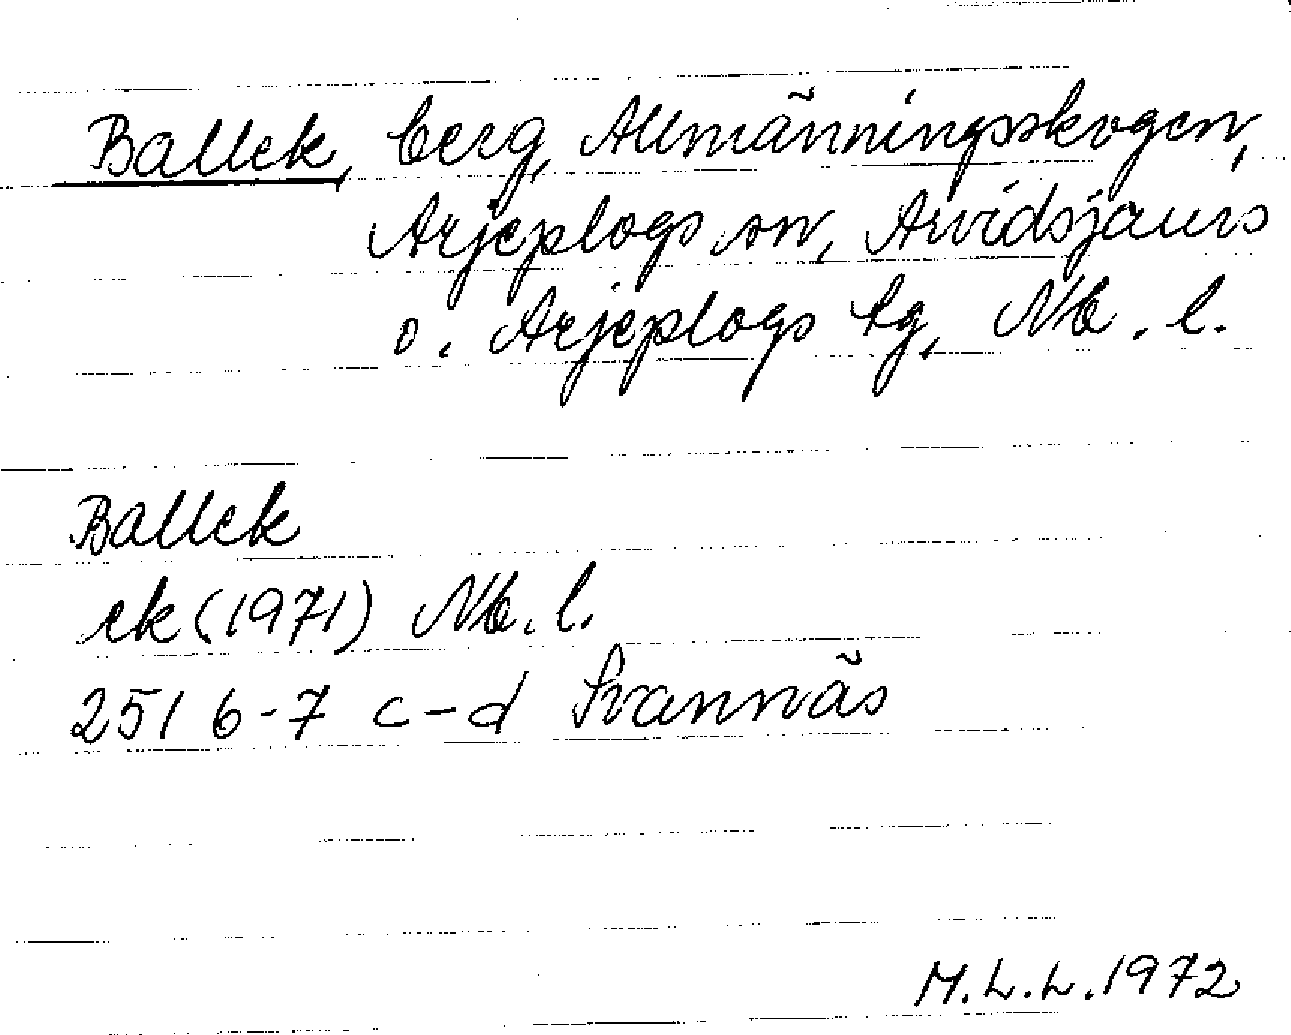 Ballek, berg, Allmänningsskogen,
Arjeplogs sn, Arvidsjaurs
o. Arjeplogs tg, Nb. l.
Ballek
ek (1971) Nb. l.
25I 6-7 c-d Svannäs
M.L.L. 1972